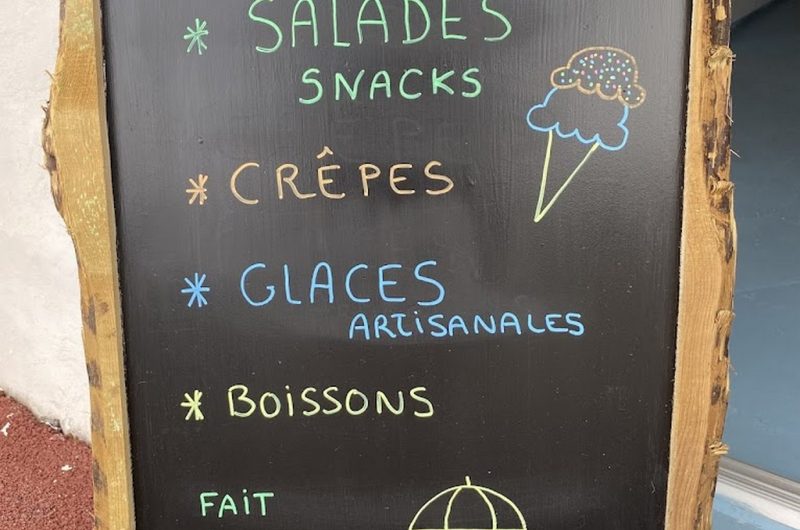 * SALADES
SNACKS
* CRÊPES
* GLACES
ARTISANALES
* BOISSONS
FAIT